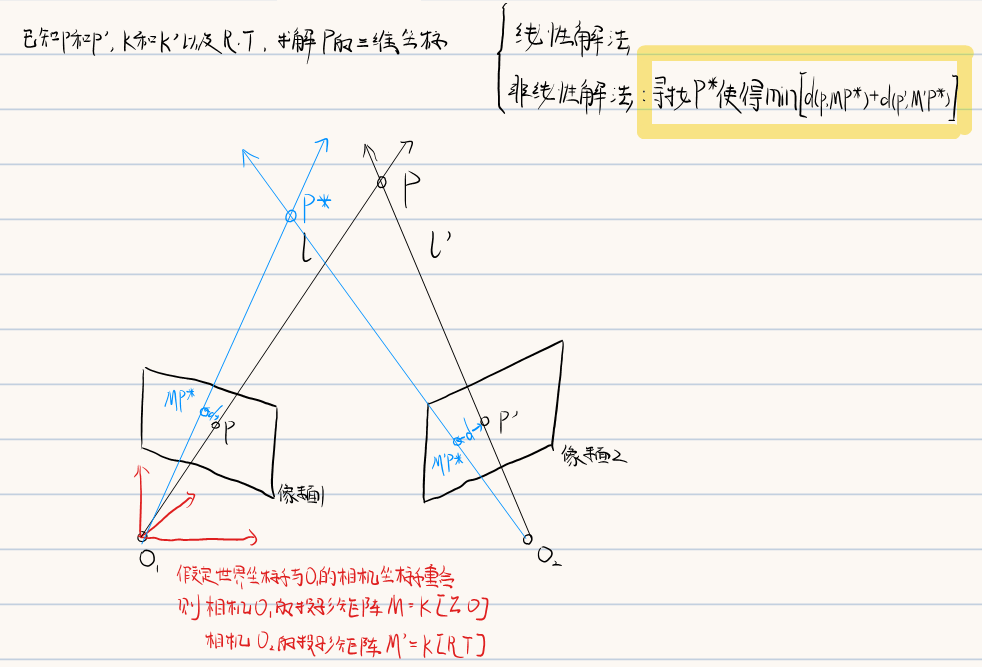 已知p和p', K和K'以及R.T, 求解P的三维坐标
线性解法
非线性解法: 寻找P*使得min[d(p,MP*)+d(p',M'P*)]
P
P*
l
l'
MP*
d
p
p'
d
M'P*
像素面1
像素面2
O₁
O₂
假定世界坐标系与O₁的相机坐标系重合
则相机O₁的投影矩阵M=K[I 0]
相机O₂的投影矩阵M'=K[R T]